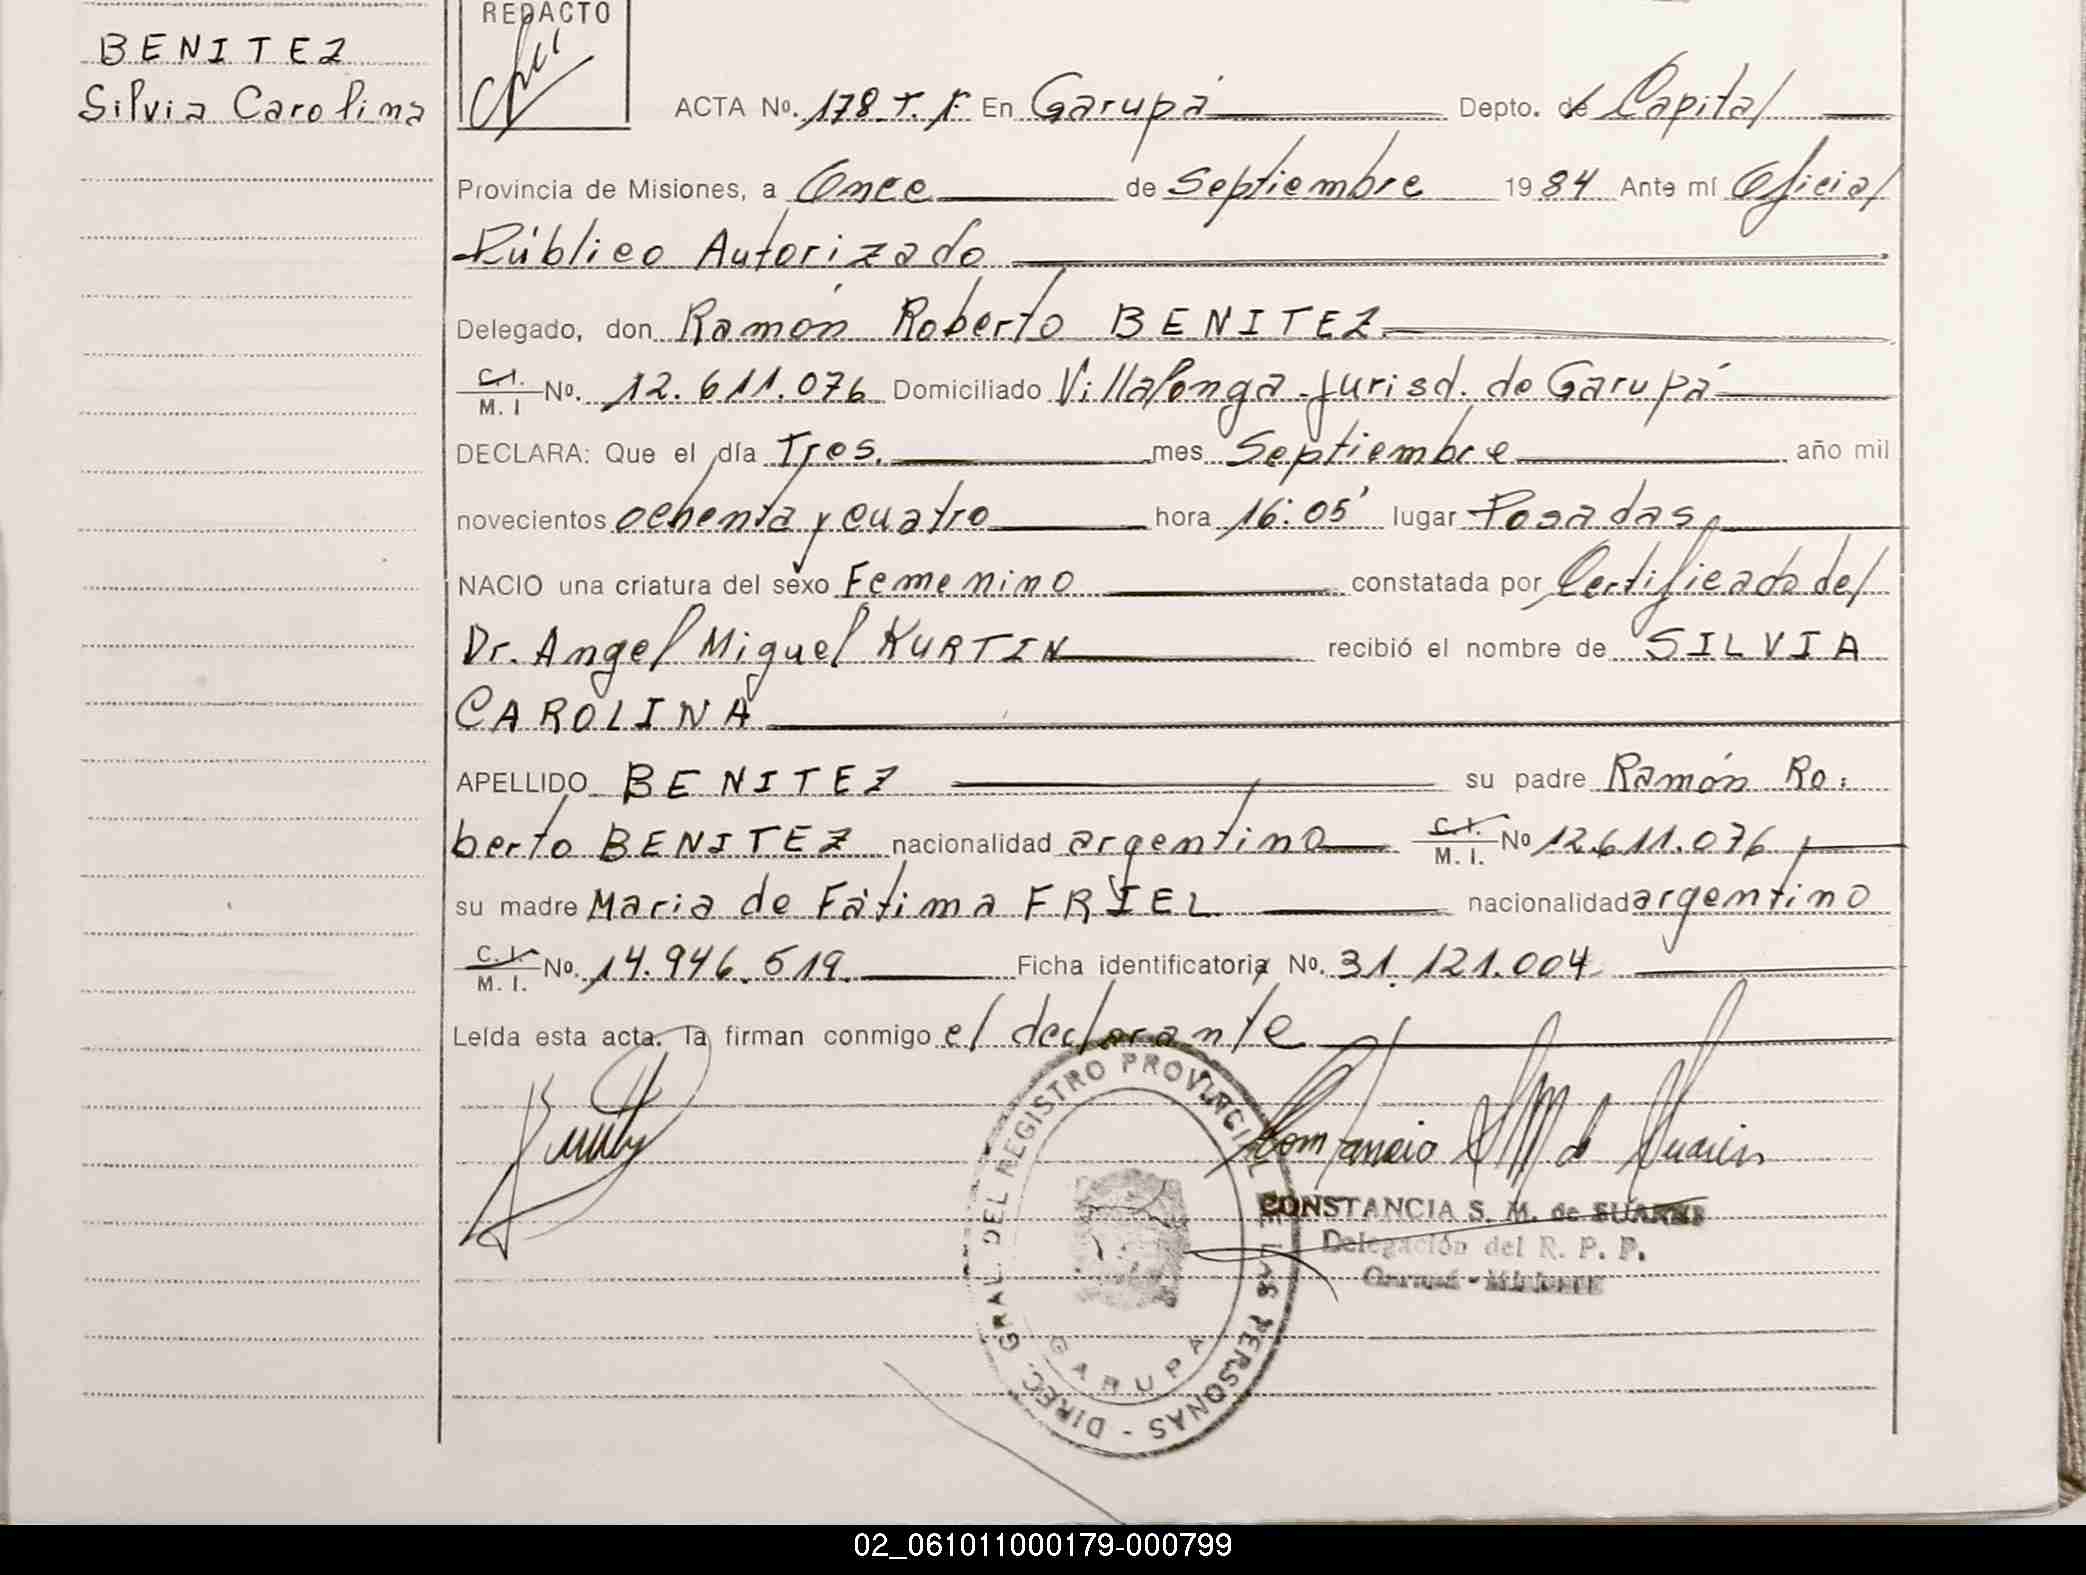 BENITEZ
Silvia Carolina
REDACTO
ACTA No. 178 T. 1º En Garupá Depto. de Capital
Provincia de Misiones, a Once de Septiembre 1984 Ante mí Oficial
Público Autorizado
Delegado, don Ramón Roberto BENITEZ
C.I. M. I No. 12.611.076 Domiciliado Villalonga-Jurisd. de Garupá
DECLARA: Que el día Tres. mes Septiembre año mil
novecientos ochenta y cuatro hora 16:05' lugar Posadas
NACIO una criatura del sexo Femenino constatada por Certificado del
Dr. Angel Miguel KURTIN recibió el nombre de SILVIA
CAROLINA
APELLIDO BENITEZ su padre Ramón Ro-
berto BENITEZ nacionalidad argentino C.I. M. I. No 12.611.076
su madre Maria de Fátima FRIEL nacionalidad argentino
C.I. M. I. No. 14.946.519. Ficha identificatoria No. 31.121.004
Leída esta acta. la firman conmigo el declarante
DIREC. GRAL. DEL REGISTRO PROVINCIAL DE LAS PERSONAS -
GARUPA
Constancia S M de Suarez
CONSTANCIA S. M. de SUAREZ
Delegación del R. P. P.
Garupá - Misiones
02_061011000179-000799